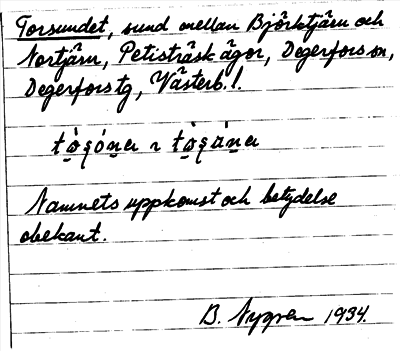 Torsundet, sund mellan Björktjärn och
Nortjärn, Petisträsk ägor, Degerfors sn,
Degerfors tg, Västerb. l.
Namnets uppkomst och betydelse
obekant.
B. Nygren 1934.